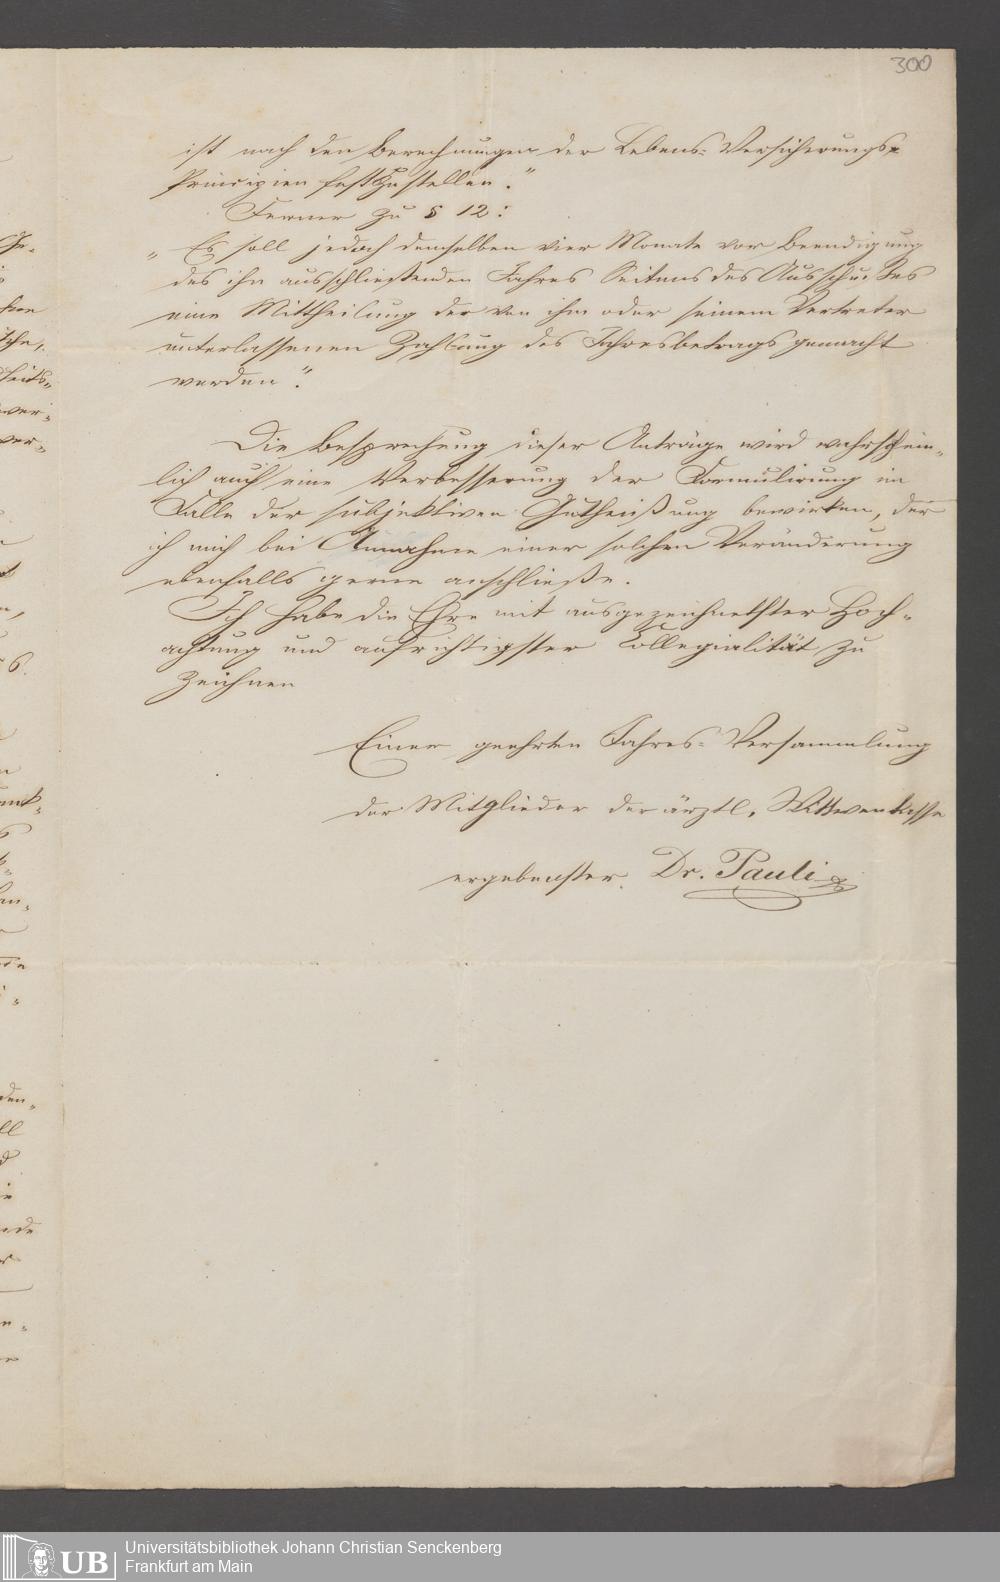 300
ist nach den Berechnungen der Lebens-Versicherungs-
Principien festzustellen."
Ferner zu § 12:
„Es soll jedoch demselben vier Monate vor Beendigung
des ihn ausschließenden Jahres Seitens des Ausschußes
eine Mittheilung der von ihm oder seinem Vertreter
unterlassenen Zahlung des Jahresbetrags gemacht
werden".
Die Besprechung dieser Anträge wird wahrschein-
lich auch eine Verbesserung der Formulirung im
Falle der subjektiven Gutheißung bewirken, der
ich mich bei Annahme einer solchen Veränderung
ebenfalls gerne anschließe.
Ich habe die Ehre mit ausgezeichnetster Hoch-
achtung und aufrichtigster Collegialität zu
zeichnen
Einer geehrten Jahres-Versammlung
der Mitglieder der ärztl. Wittwenkasse
ergebenster Dr. Pauli
UB
Universitätsbibliothek Johann Christian Senckenberg
Frankfurt am Main